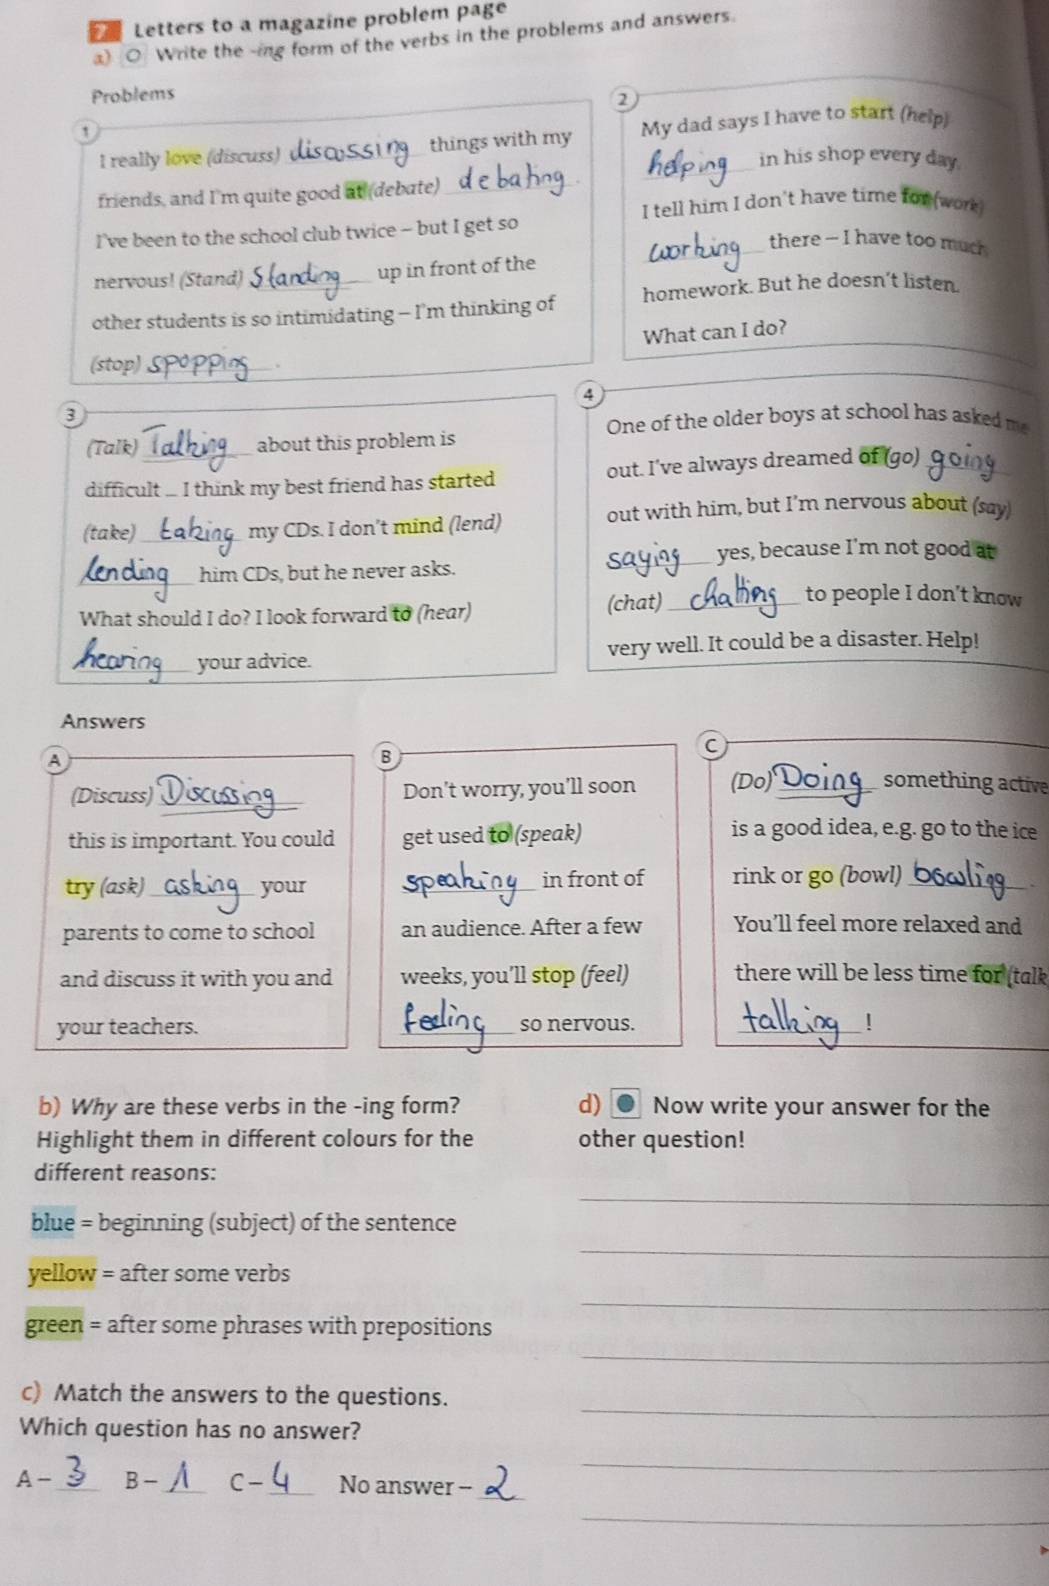 7 Letters to a magazine problem page
a) Write the -ing form of the verbs in the problems and answers.
Problems
1
I really love (discuss) discussing things with my
friends, and I'm quite good at (debate) debating.
I've been to the school club twice – but I get so
nervous! (Stand) Standing up in front of the
other students is so intimidating – I'm thinking of
(stop) spopping.
2
My dad says I have to start (help)
helping in his shop every day.
I tell him I don't have time for (work)
working there – I have too much
homework. But he doesn't listen.
What can I do?
3
(Talk) Talking about this problem is
difficult ... I think my best friend has started
(take) taking my CDs. I don't mind (lend)
lending him CDs, but he never asks.
What should I do? I look forward to (hear)
hearing your advice.
4
One of the older boys at school has asked me
out. I've always dreamed of (go) going
out with him, but I'm nervous about (say)
saying yes, because I'm not good at
(chat) chatting to people I don't know
very well. It could be a disaster. Help!
Answers
A
(Discuss) Discussing
this is important. You could
try (ask) asking your
parents to come to school
and discuss it with you and
your teachers.
B
Don't worry, you'll soon
get used to (speak)
speaking in front of
an audience. After a few
weeks, you'll stop (feel)
feeling so nervous.
C
(Do) Doing something active
is a good idea, e.g. go to the ice
rink or go (bowl) bowling.
You'll feel more relaxed and
there will be less time for (talk
talking!
b) Why are these verbs in the -ing form?
Highlight them in different colours for the
different reasons:
blue = beginning (subject) of the sentence
yellow = after some verbs
green = after some phrases with prepositions
c) Match the answers to the questions.
Which question has no answer?
A – 3 B – 1 C – 4 No answer – 2
d) Now write your answer for the
other question!